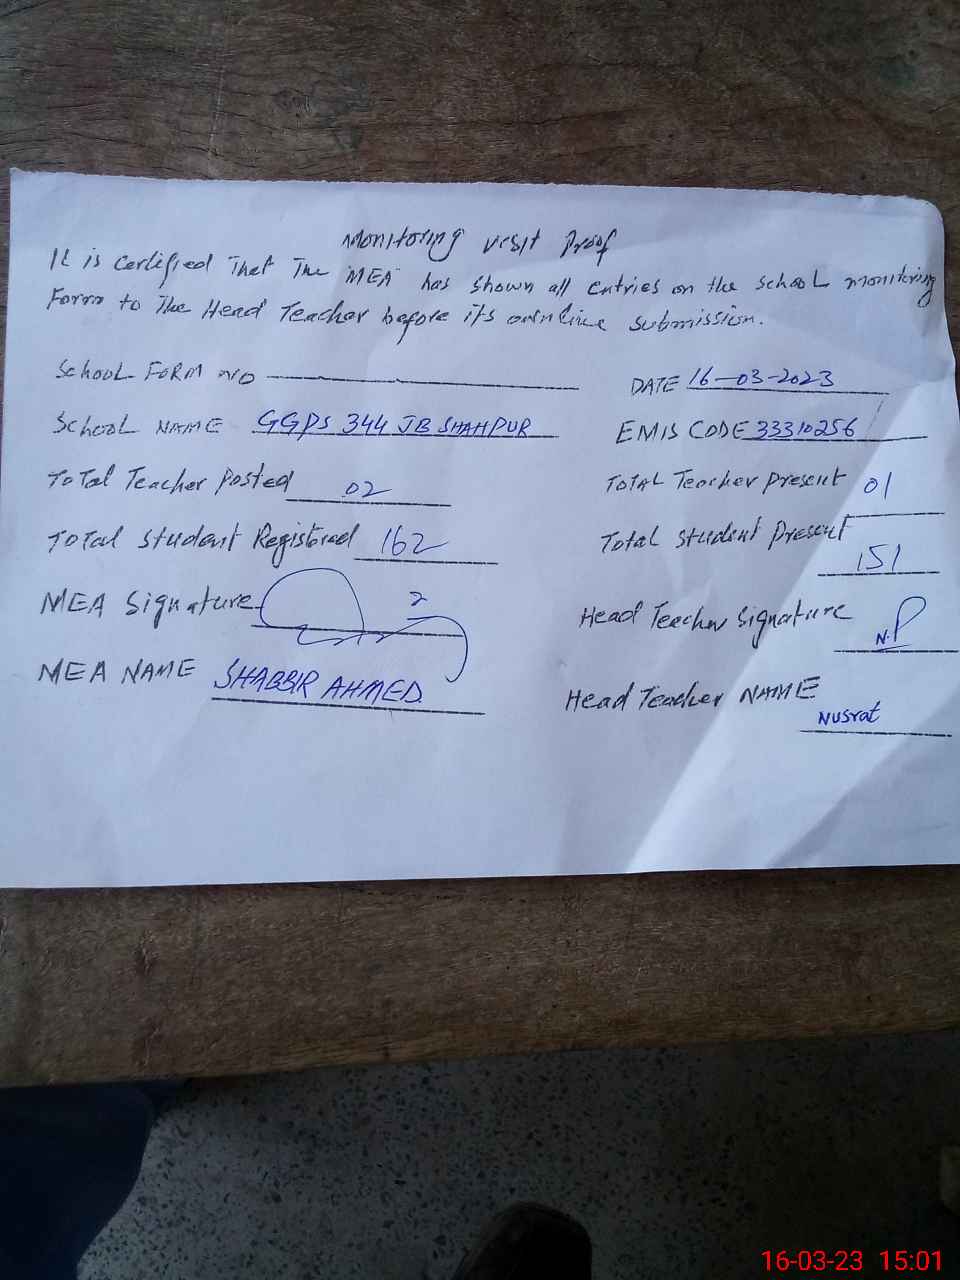 Monitoring visit Proof
It is Certified That The MEA has shown all entries on the school monitoring
Form to The Head Teacher before its online submission.
School Form No
DATE 16-03-2023
School NAME GGPS 344 JB SHAHPUR
EMIS CODE 33310256
Total Teacher Posted 02
Total Teacher Present 01
Total Student Registered 162
Total Student Present 151
MEA Signature
Head Teacher Signature N.P
MEA NAME SHABBIR AHMED
Head Teacher NAME Nusrat
16-03-23 15:01